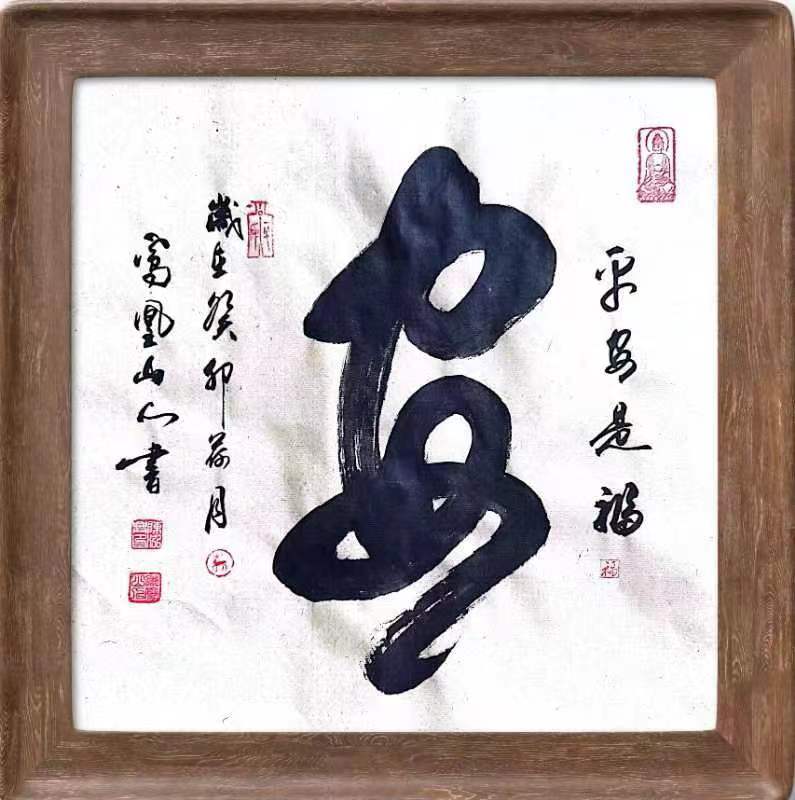 平安是福
安
歲在癸卯荷月
鳳凰山人書